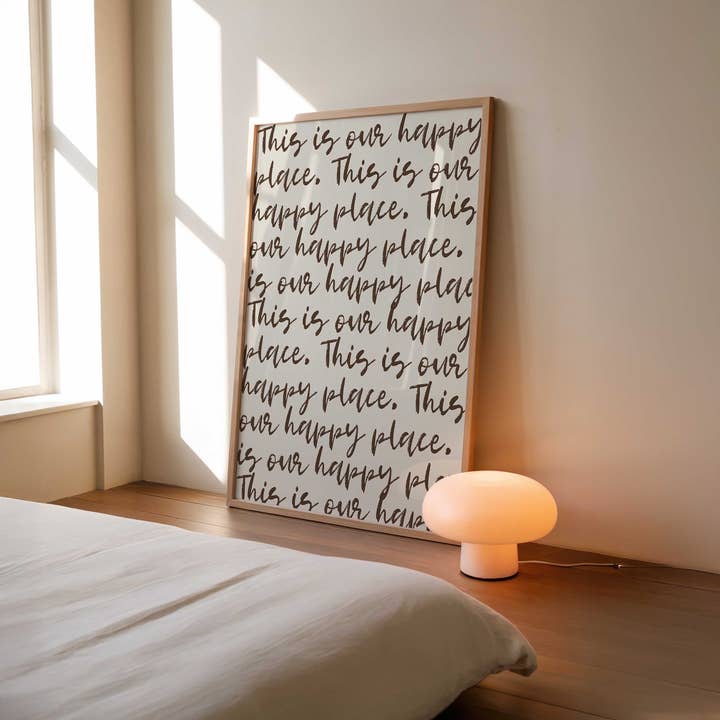 This is our happy
place. This is our
happy place. This
our happy place.
is our happy plac
This is our happy
place. This is our
happy place. This
our happy place.
is our happy pla
This is our happ